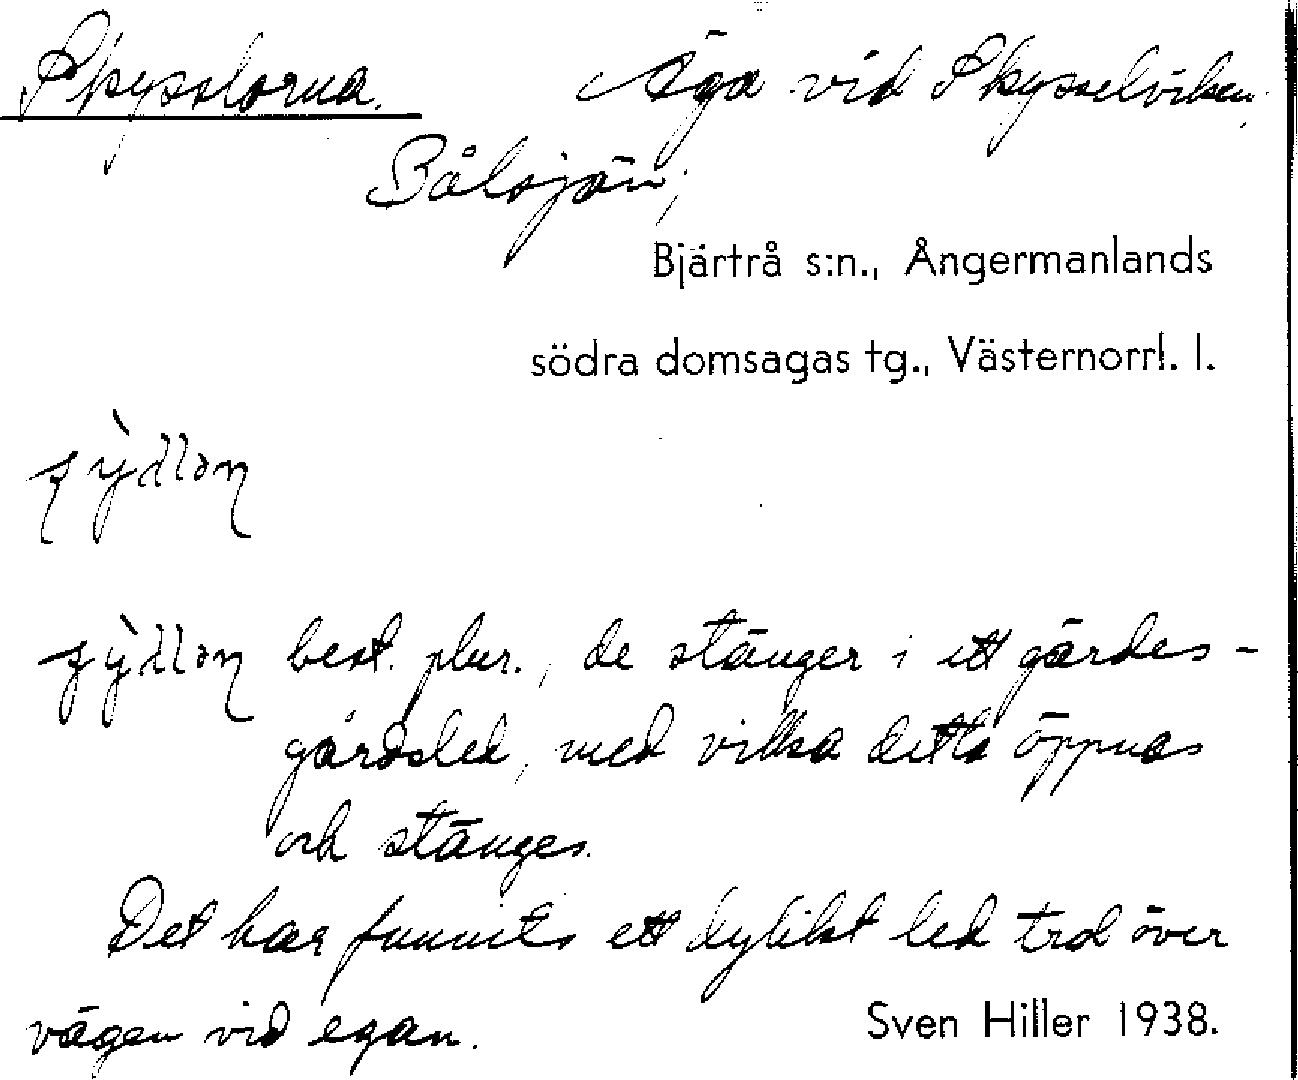 Skysslorna. Äga vid Skysselviken,
Bålsjön,
Bjärtrå s:n., Ångermanlands
södra domsagas tg., Västernorrl. l.
best. plur., de stänger i ett gärdes-
gårdsled, med vilka detta öppnas
och stänges.
Det har funnits ett dylikt led trol över
vägen vid egan. Sven Hiller 1938.